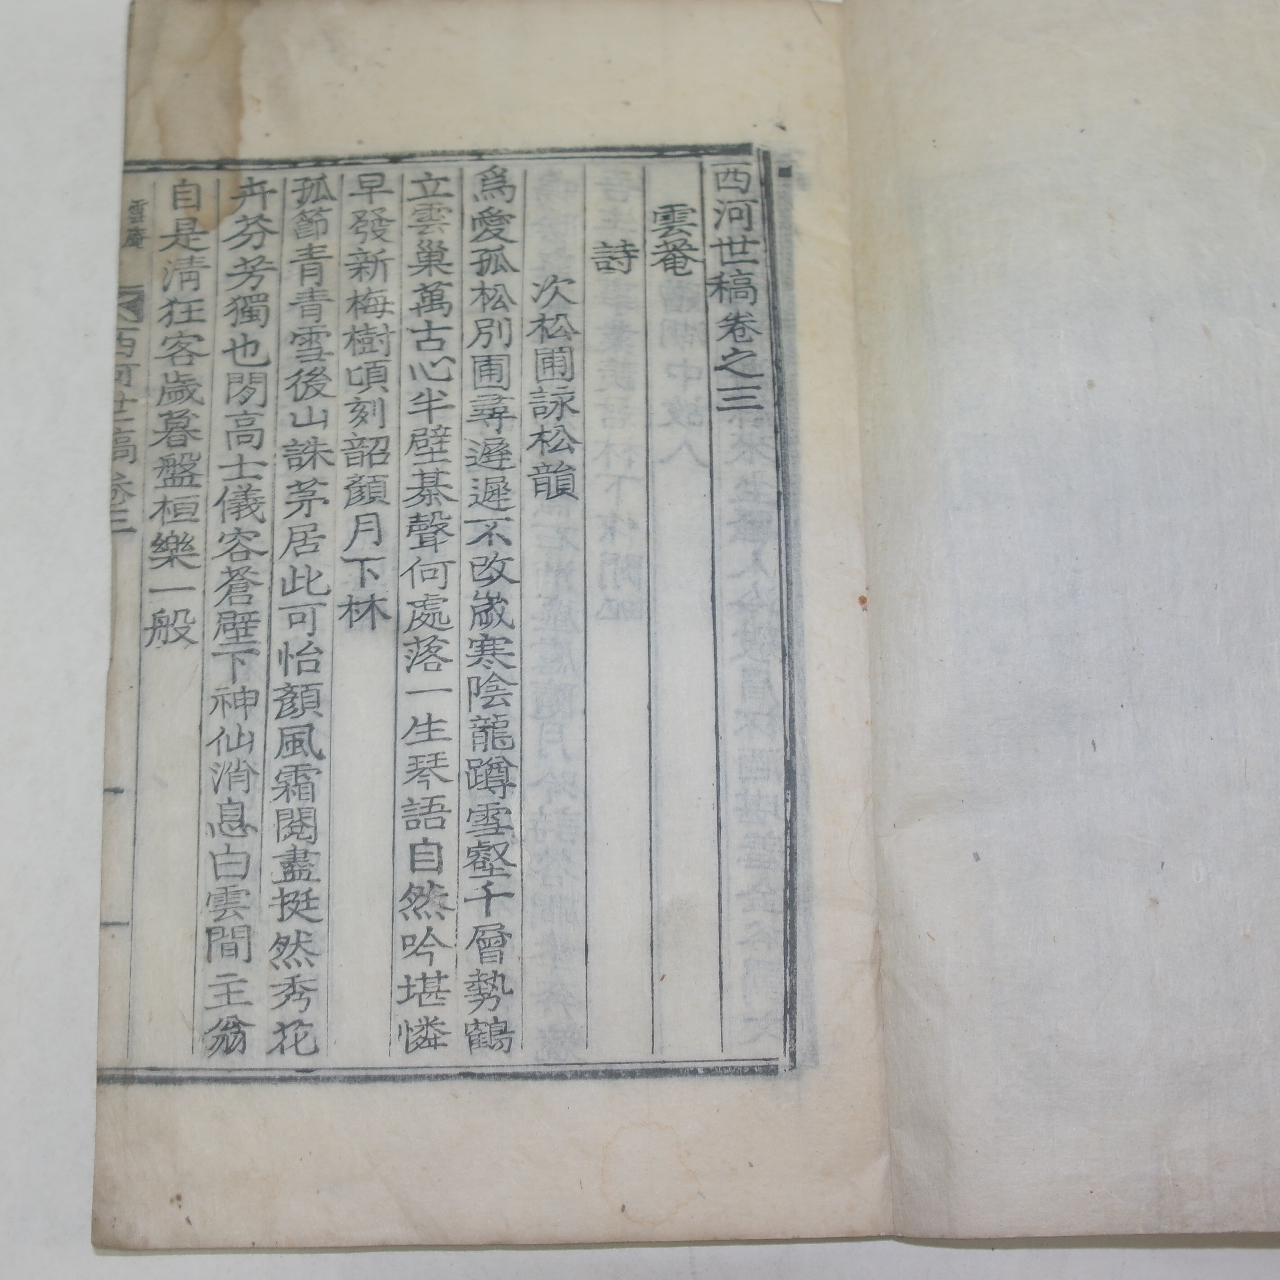 西河世稿卷之三
雲菴
詩
次松圃詠松韻
爲愛孤松別圃尋遲遲不改歲寒陰龍蹲雪壑千層勢鶴
立雲巢萬古心半壁棊聲何處落一生琴語自然吟堪憐
早發新梅樹頃刻韶顏月下林
孤節青青雪後山誅茅居此可怡顏風霜閱盡挺然秀花
卉芬芳獨也閑高士儀容蒼壁下神仙消息白雲間主翁
自是淸狂客歲暮盤桓樂一般
雲菴 西河世稿卷三